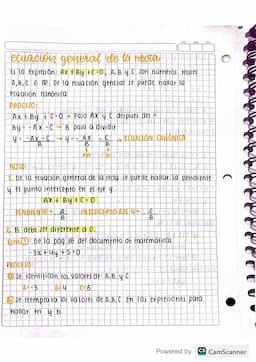 ecuación general de la recta:
Es la expresión: Ax + By + C = 0, A, B y C son números reales
A, B, C ∈ IR. De la ecuación general se puede hallar la
ecuación canónica.
PROCESO:
Ax + By + C = 0 → Paso Ax y C después del =
By = -Ax - C → B pasa a dividir
y = -Ax - C / B → y = - Ax/B - C/B → ECUACIÓN CANÓNICA
m b
NOTA:
1. De la ecuación general de la recta se puede hallar la pendiente
y el punto intercepto en el eje y.
Ax + By + C = 0
PENDIENTE = - A/B INTERCEPTO EJE Y = - C/B
2. B debe ser diferente a 0.
① De la pág 56 del documento de matemáticas
-3x + 4y + 5 = 0
PROCESO:
① Se identifican los valores de A, B y C
A = -3 B = 4 C = 5
② Se reemplaza los valores de A, B, C en las expresiones para
hallar m y b.
Powered by CS CamScanner